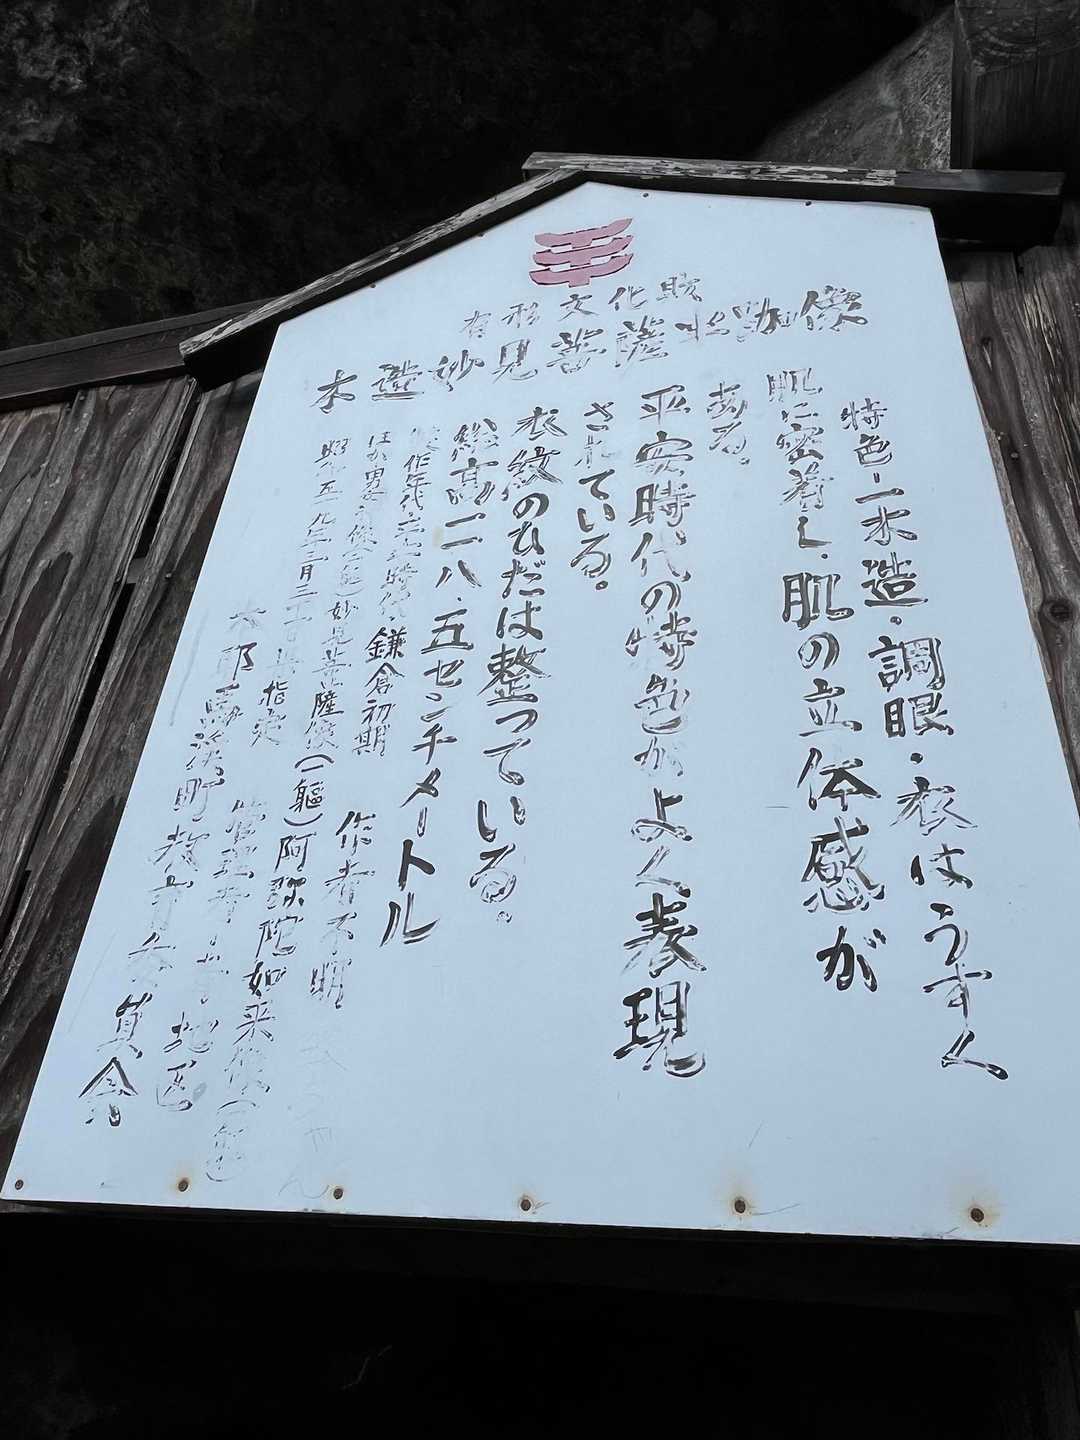 有形文化財
木造妙見菩薩
特色-一木造・調眼・衣はうすく
肌に密着し、肌の立体感が
ある。
平安時代の特色がよく表現
されている。
衣紋のひだは整っている。
総高一一八.五センチメートル
作年代 鎌倉初期 作者不明
妙見菩薩像(一軀)阿弥陀如来像(一軀)
昭和五九年三月三 指定 管理者 地区
耶馬渓町教育委員会